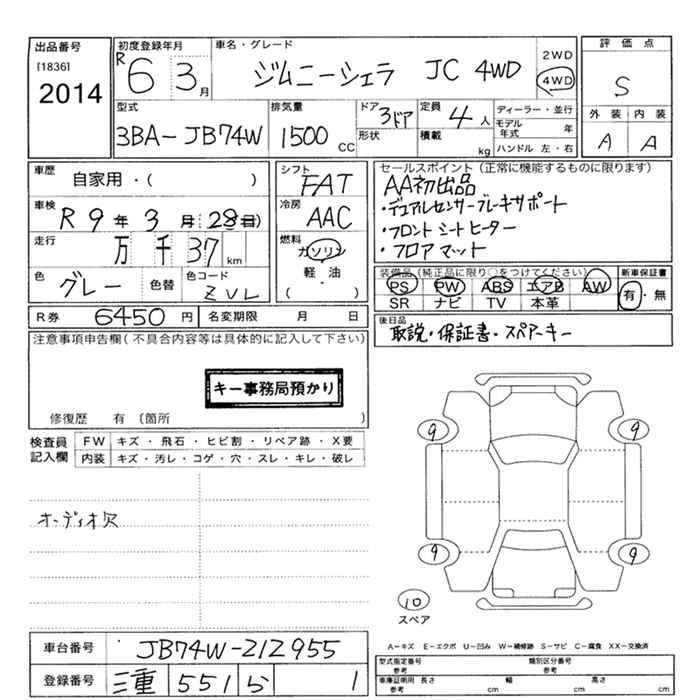 出品番号
[1836]
2014
初度登録年月
R 6 3 月
車名・グレード
ジムニーシエラ JC 4WD
2WD
4WD
評価点
S
外装 内装
A A
型式
3BA-JB74W
排気量
1500 CC
ドア
3ドア
形状
定員
4 人
積載
kg
ディーラー・並行
モデル年式 年
ハンドル 左・右
車歴
自家用・( )
車検
R 9 年 3 月 (28日)
走行
万 千 37 km
色
グレー
色替
色コード
ZVL
シフト
FAT
冷房
AAC
燃料
ガソリン
軽・油
( ・ )
セールスポイント(正常に機能するものに限ります)
AA初出品
・デュアルセンサーブレーキサポート
・フロントシートヒーター
・フロアマット
装備品(純正品に限り○をつけてください)
PS PW ABS エアB AW
SR ナビ TV 本革
新車保証書
有・無
R券 6450 円
名変期限 月 日
後日品
取説・保証書・スペアーキー
注意事項申告欄(不具合内容等は具体的に記入して下さい)
キー事務局預かり
修復歴 有 (箇所 )
検査員記入欄
FW キズ・飛石・ヒビ割・リペア跡・X要
内装 キズ・汚レ・コゲ・穴・スレ・キレ・破レ
オーディオ欠
9 9
9 9
10
スペア
A−キズ E−エクボ U−凹み W−補修跡 S−サビ C−腐食 XX−交換済
車台番号
JB74W-212955
登録番号
三重 551 ら 1
型式指定番号 参考
類別区分番号 参考
車庫証明用 参考
長さ cm
幅 cm
高さ cm